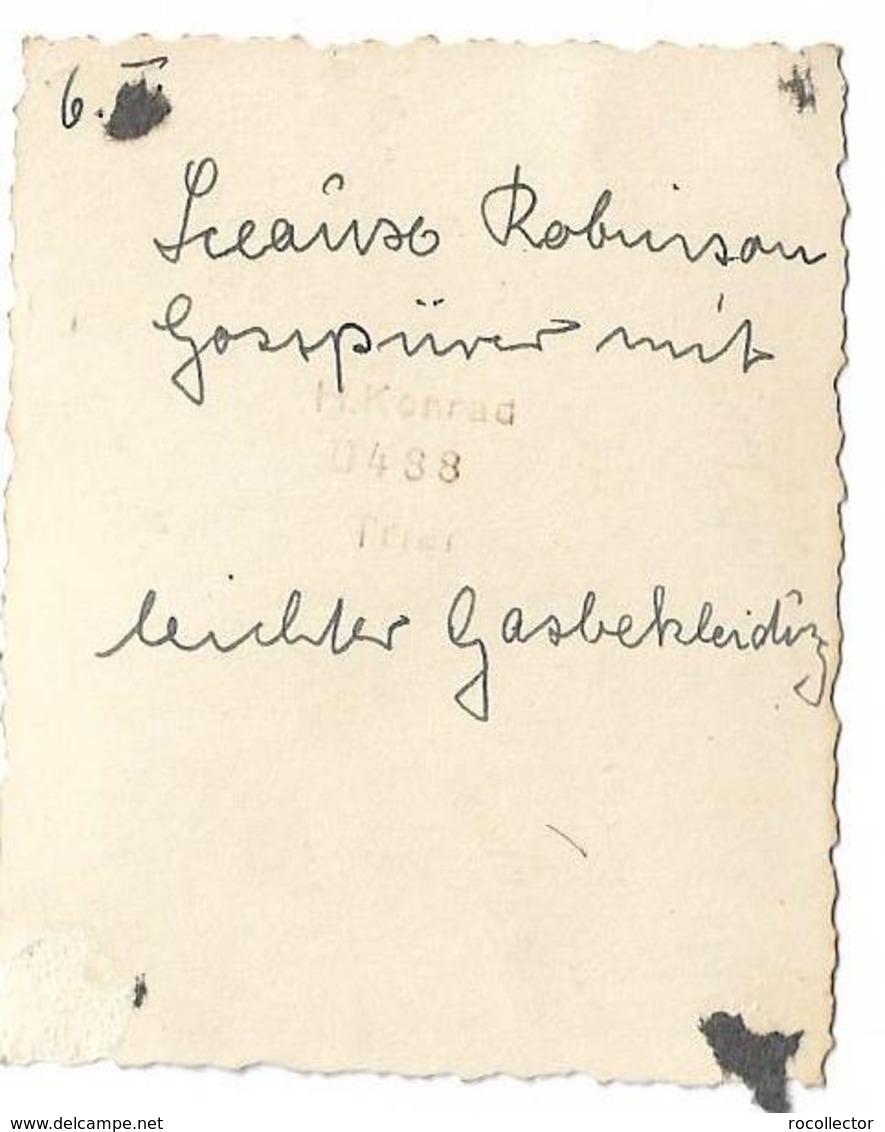 6.
Robinson
Gasspürer mit
H. Konrad
0488
Trier
leichter Gasbekleidung
www.delcampe.net
rocollector